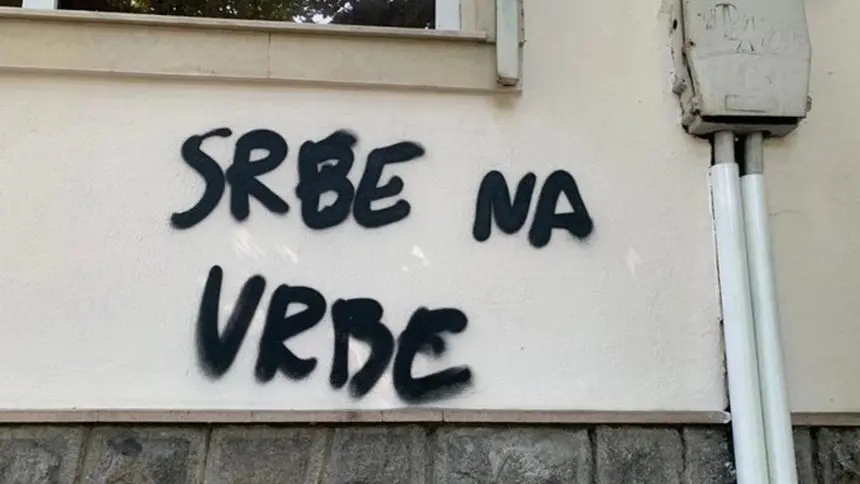 SRBE NA
VRBE